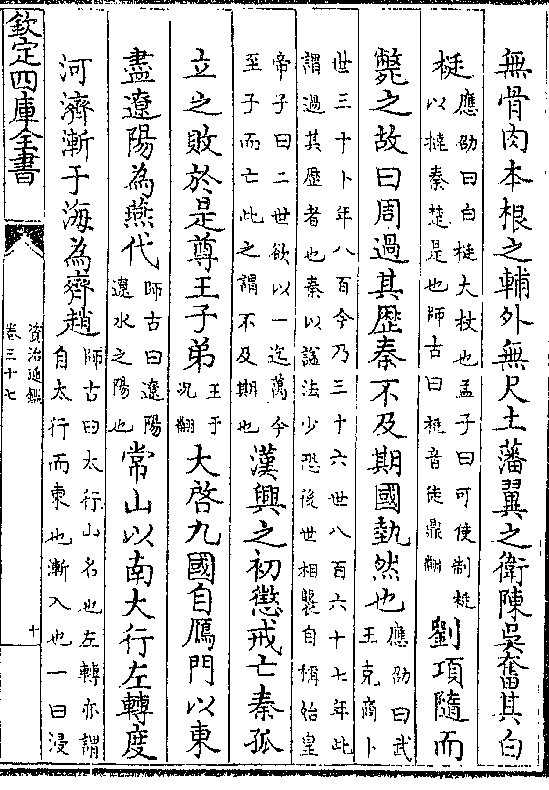 無骨肉本根之輔外無尺土藩翼之衛陳吳奮其白
梃應劭曰白梃大杖也孟子曰可使制梃以撻秦楚是也師古曰梃音徒鼎翻劉項隨而
斃之故曰周過其歷秦不及期國埶然也應劭曰武王克商卜
世三十卜年八百今乃三十六世八百六十七年此謂過其歷者也秦以諡法少恐後世相襲自稱始皇
帝子曰二世欲以一迄萬今至子而亡此之謂不及期也漢興之初懲戒亡秦孤
立之敗於是尊王子弟王于况翻大啓九國自鴈門以東
盡遼陽為燕代師古曰遼陽遼水之陽也常山以南大行左轉度
河濟漸于海為齊趙師古曰太行山名也左轉亦謂自太行而東也漸入也一曰浸
欽定四庫全書
資治通鑑
卷三十七
十